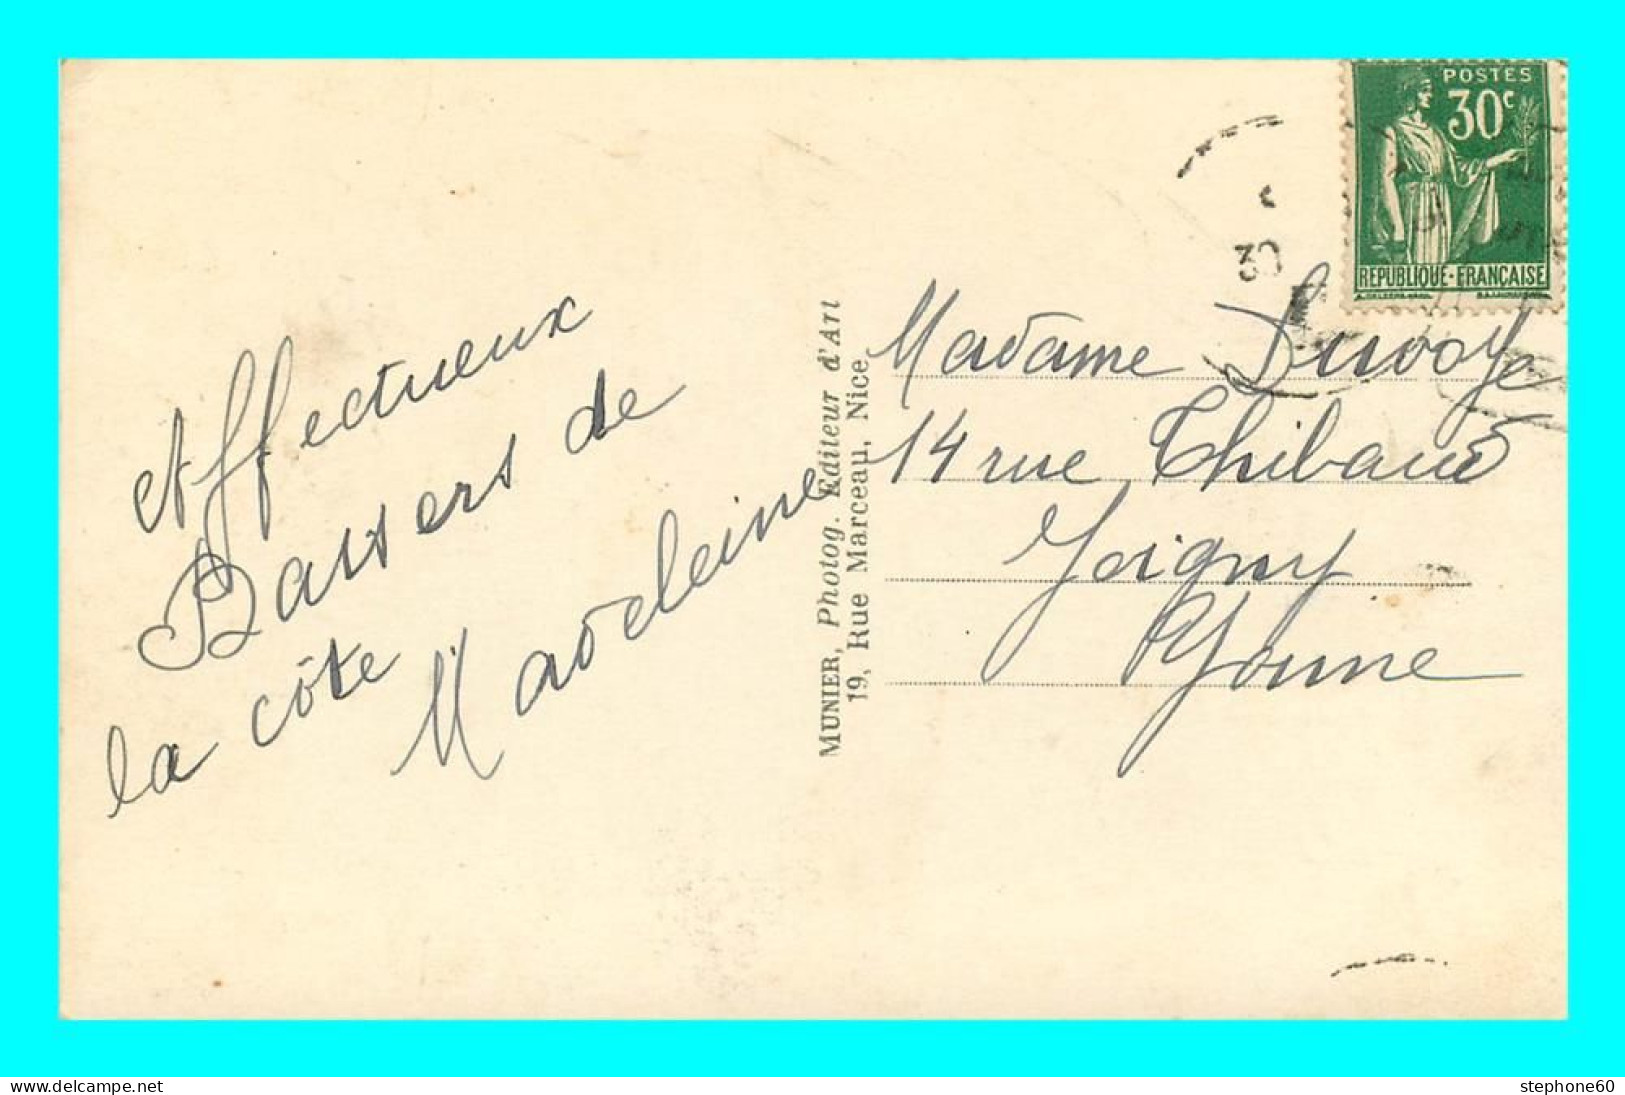 Affectueux
Baisers de
la côte
Madeleine
MUNIER, Photog. Editeur d'Art
19, Rue Marceau, Nice
POSTES
30c
REPUBLIQUE-FRANÇAISE
30
Madame
14 rue Thibaud
Joigny
Yonne
Lire la suite
stephone60